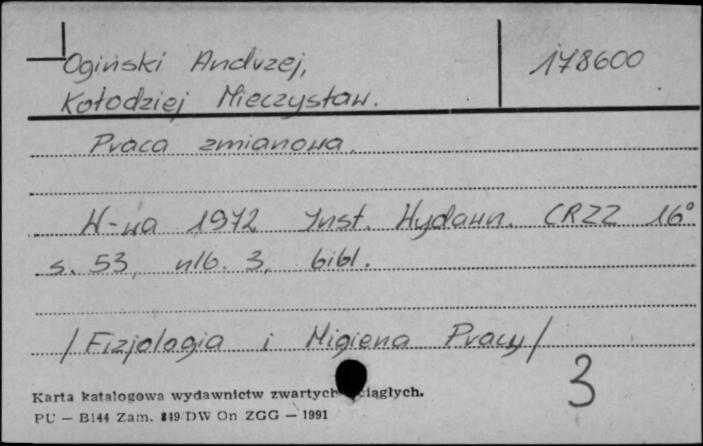 Ogiński Andrzej,
178600
Kołodziej Mieczysław.
Praca zmianowa.
W-wa 1972 Inst. Wydawn. CRZZ 16°
s. 53, nlb. 3, bibl.
/Fizjologia i Higiena Pracy/
3
Karta katalogowa wydawnictw zwartych ciągłych.
PU — B144 Zam. 849 DW On ZGG — 1991